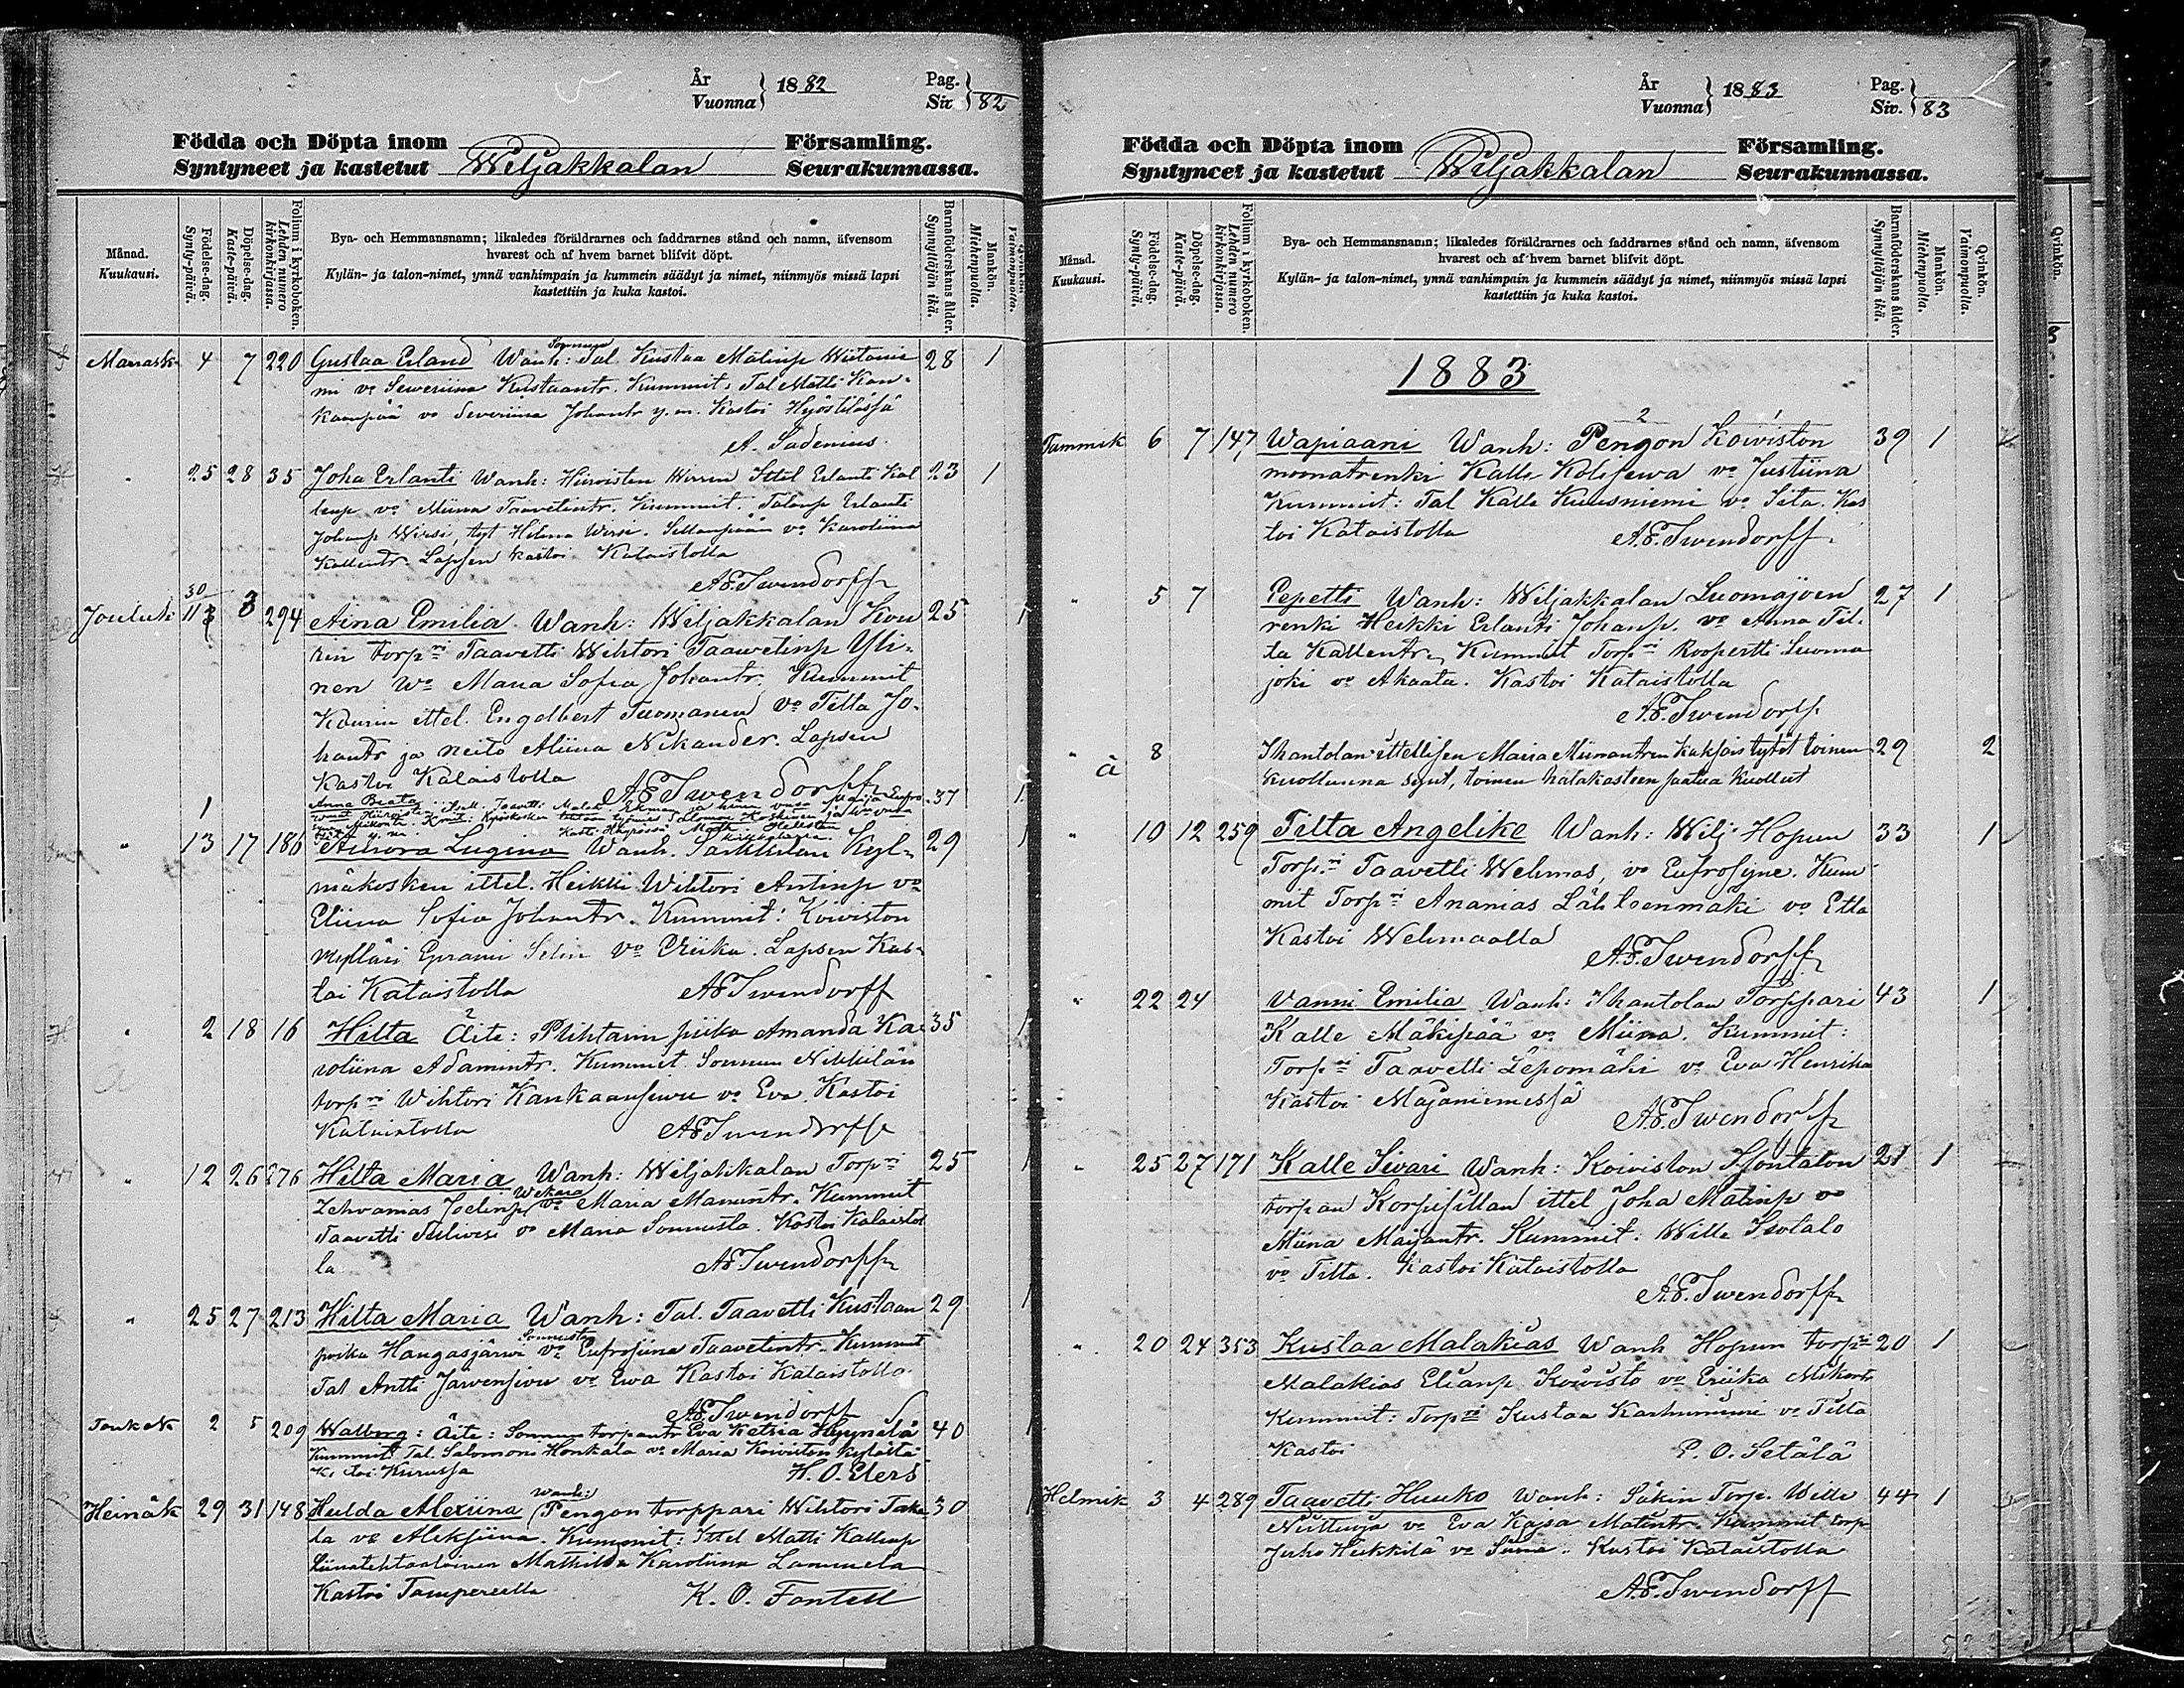 År
Vuonna } 1882
Pag.
Siv. } 82
Födda och Döpta inom Församling.
Syntyneet ja kastetut Wiljakkalan Seurakunnassa.
Månad.
Kuukausi.
Födelse-dag.
Synty-päivä.
Döpelse-dag.
Kaste-päivä.
Folium i kyrkoboken.
Lehden numero
kirkonkirjassa.
Bya- och Hemmansnamn; likaledes föräldrarnes och faddrarnes stånd och namn, äfvensom
hvarest och af hvem barnet blifvit döpt.
Kylän- ja talon-nimet, ynnä vanhimpain ja kummein säädyt ja nimet, niinmyös missä lapsi
kastettiin ja kuka kastoi.
Barnaföderskans ålder.
Synnyttäjän ikä.
Mankön.
Miehenpuolia.
Vaimonpuolia.
Marrask. 4 7 220 Gustaa Erland Wanh: Tal Kustaa Matinp 28 1
mi vo Seweriina Kustaantr. Kummit: Tal Matti Kan-
kaanpää vo Severiina Johantr y.m. Kastoi
A. Sadenius.
" 25 28 35 Joha Erlanti Wanh: Ittel Erlanti Kal 23 1
lenp vo Miina Taavetintr. Kummit. Erlanti
Johanp Wirsi, Helena Wirsi. vo Karoliina
Kallentr. Lapsen kastoi Kataistolla
A.F. Swendorff
30
Jouluk 11 3 294 Aina Emilia Wanh: Wiljakkalan 25 1
torp:ri Taavetti Wihtori Taawetinp Yli-
nen Wo Maria Sofia Johantr. Kummit
ittel. Engelbert Tuomanen vo Tilta Jo-
hantr ja neito Miina Nikander. Lapsen
Kastoi Kataistolla A.F. Swendorff
1 Anna Beata 37 1
" 13 17 186 Aurora Lugina Wanh. Sarkkilan Kyl- 29 1
mäkosken ittel. Heikki Wihtori Antinp vo
Eliina Sofia Johantr. Kummit: Koiviston
Mylläri Eprami Selin vo Eriika. Lapsen Kas-
toi Kataistolla A.F. Swendorff
" 2 18 16 Hilta Äite: piika Amanda Ka- 35 1
roliina Adamintr. Kummit. Sonnun Nikkilän
torp:ri Wihtori Kankaansivu vo Eva. Kastoi
Kataistolla A.F. Swendorff
" 12 26 276 Hilta Maria Wanh: Wiljakkalan Torp:ri 25 1
Joelinp vo Maria Manuntr. Kummit
Taavetti vo Maria Sonnusta. Kastoi Kataistol
la A.F. Swendorff
" 25 27 213 Hilta Maria Wanh: Tal. Taavetti Kustaan 29 1
poika Hangasjärwi vo Eufrosiina Taavetintr. Kummit
Tal Antti Järvensivu vo Ewa Kastoi Kataistolla
A.F. Swendorff
Toukok 2 5 209 Walborg: Äite: Sonnun torpantr Eva Katria 40 1
Kummit Tal. Salomoni Honkala vo Maria Koiviston kylältä
Kurussa H. O. Elers
Wanh:
Heinäk 29 31 148 Hulda Alexiina Pengon torppari Wihtori Taka- 30 1
la vo Aleksiina. Kummit: Ittel Matti Kallenp
Mathilda Karoliina Lammela
Kastoi Tampereella K. O. Fontell
År
Vuonna } 1883
Pag.
Siv. } 83
Födda och Döpta inom Församling.
Syntyneet ja kastetut Wiljakkalan Seurakunnassa.
Månad.
Kuukausi.
Födelse-dag.
Synty-päivä.
Döpelse-dag.
Kaste-päivä.
Folium i kyrkoboken.
Lehden numero
kirkonkirjassa.
Bya- och Hemmansnamn; likaledes föräldrarnes och faddrarnes stånd och namn, äfvensom
hvarest och af hvem barnet blifvit döpt.
Kylän- ja talon-nimet, ynnä vanhimpain ja kummein säädyt ja nimet, niinmyös missä lapsi
kastettiin ja kuka kastoi.
Barnaföderskans ålder.
Synnyttäjän ikä.
Mankön.
Miehenpuolia.
Qvinkön.
Vaimonpuolia.
1883
2 1
Tammik 6 7 147 Wapiaani Wanh: Pengon Koiviston 39 1
muonatrenki Kalle vo Justiina
Kummit: Tal Kalle Kuusniemi vo Sita. Kas
toi Kataistolla A.F. Swendorff.
" 5 7 Pepetti Wanh: Wiljakkalan Luomajoen 27 1
renki Heikki Erlanti Johanp. vo Anna Til-
ta Kallentr. Kummit Torp:ri Roopertti Luoma
joki vo Akaata. Kastoi Kataistolla
A.F. Swendorff.
" a 8 Ihantolan ittellisen Maria Miinantren kaksois tytöt toinen 29 2
kuolluna synt, toinen hätäkasteen saatua kuollut
" 10 12 259 Tilta Angelike Wanh: Wilj Hopun 33 1
Torp:ri Taavetti Wehmas, vo Eufrosyne. Kum
mit Torp:ri Ananias Lähteenmäki vo Etla
Kastoi Wehmaalla
A.F. Swendorff
" 22 24 Vanni Emilia Wanh: Ihantolan Torppari 43 1
Kalle Mäkipää vo Miina. Kummit:
Torp:ri Taavetti Lepomäki vo Eva Henrika
Kastoi Majaniemessä
A.F. Swendorff
" 25 27 171 Kalle Sivari Wanh: Koiviston Isontalon 21 1
torpan Korpisillan ittel Joha Matinp vo
Miina Majantr. Kummit: Wille Isotalo
vo Tilta. Kastoi Kataistolla
A.F. Swendorff
" 20 24 353 Kustaa Malakias Wanh Hopun torp:ri 20 1
Malakias Elianp Koivisto vo Eriika Mikontr
Kummit: Torp:ri Kustaa Karhuniemi vo Tilta
Kastoi P. O. Setälä
Helmik 3 4 289 Taavetti Huuko Wanh: Säkin Torp. Wille 44 1
vo Eva Kajsa Matintr. Kummit torp
Juho Heikkilä vo Kastoi Kataistolla
A.F. Swendorff